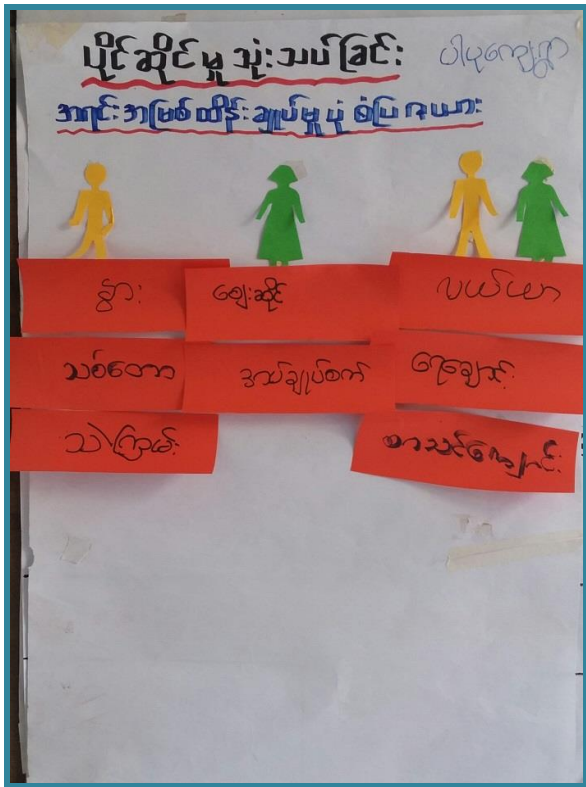 ပိုင်ဆိုင်မှု သုံးသပ်ခြင်း
ပါပုကျေးရွာ
အရင်းအမြစ်ထိန်းချုပ်မှုပုံစံပြဇယား
နွား
ဈေးဆိုင်
လယ်ယာ
သစ်တော
အပ်ချုပ်စက်
ရေချောင်း
သဲကြမ်း
စာသင်ကျောင်း